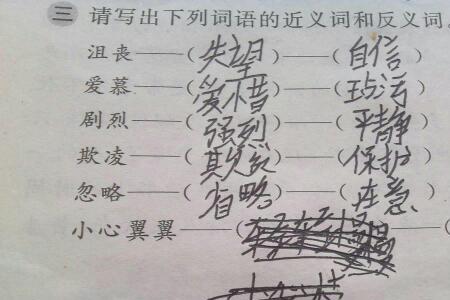 三 请写出下列词语的近义词和反义词
沮丧——(失望)——(自信)
爱慕——(爱惜)——(玷污)
剧烈——(强烈)——(平静)
欺凌——(欺负)——(保护)
忽略——(省略)——(在意)
小心翼翼——(